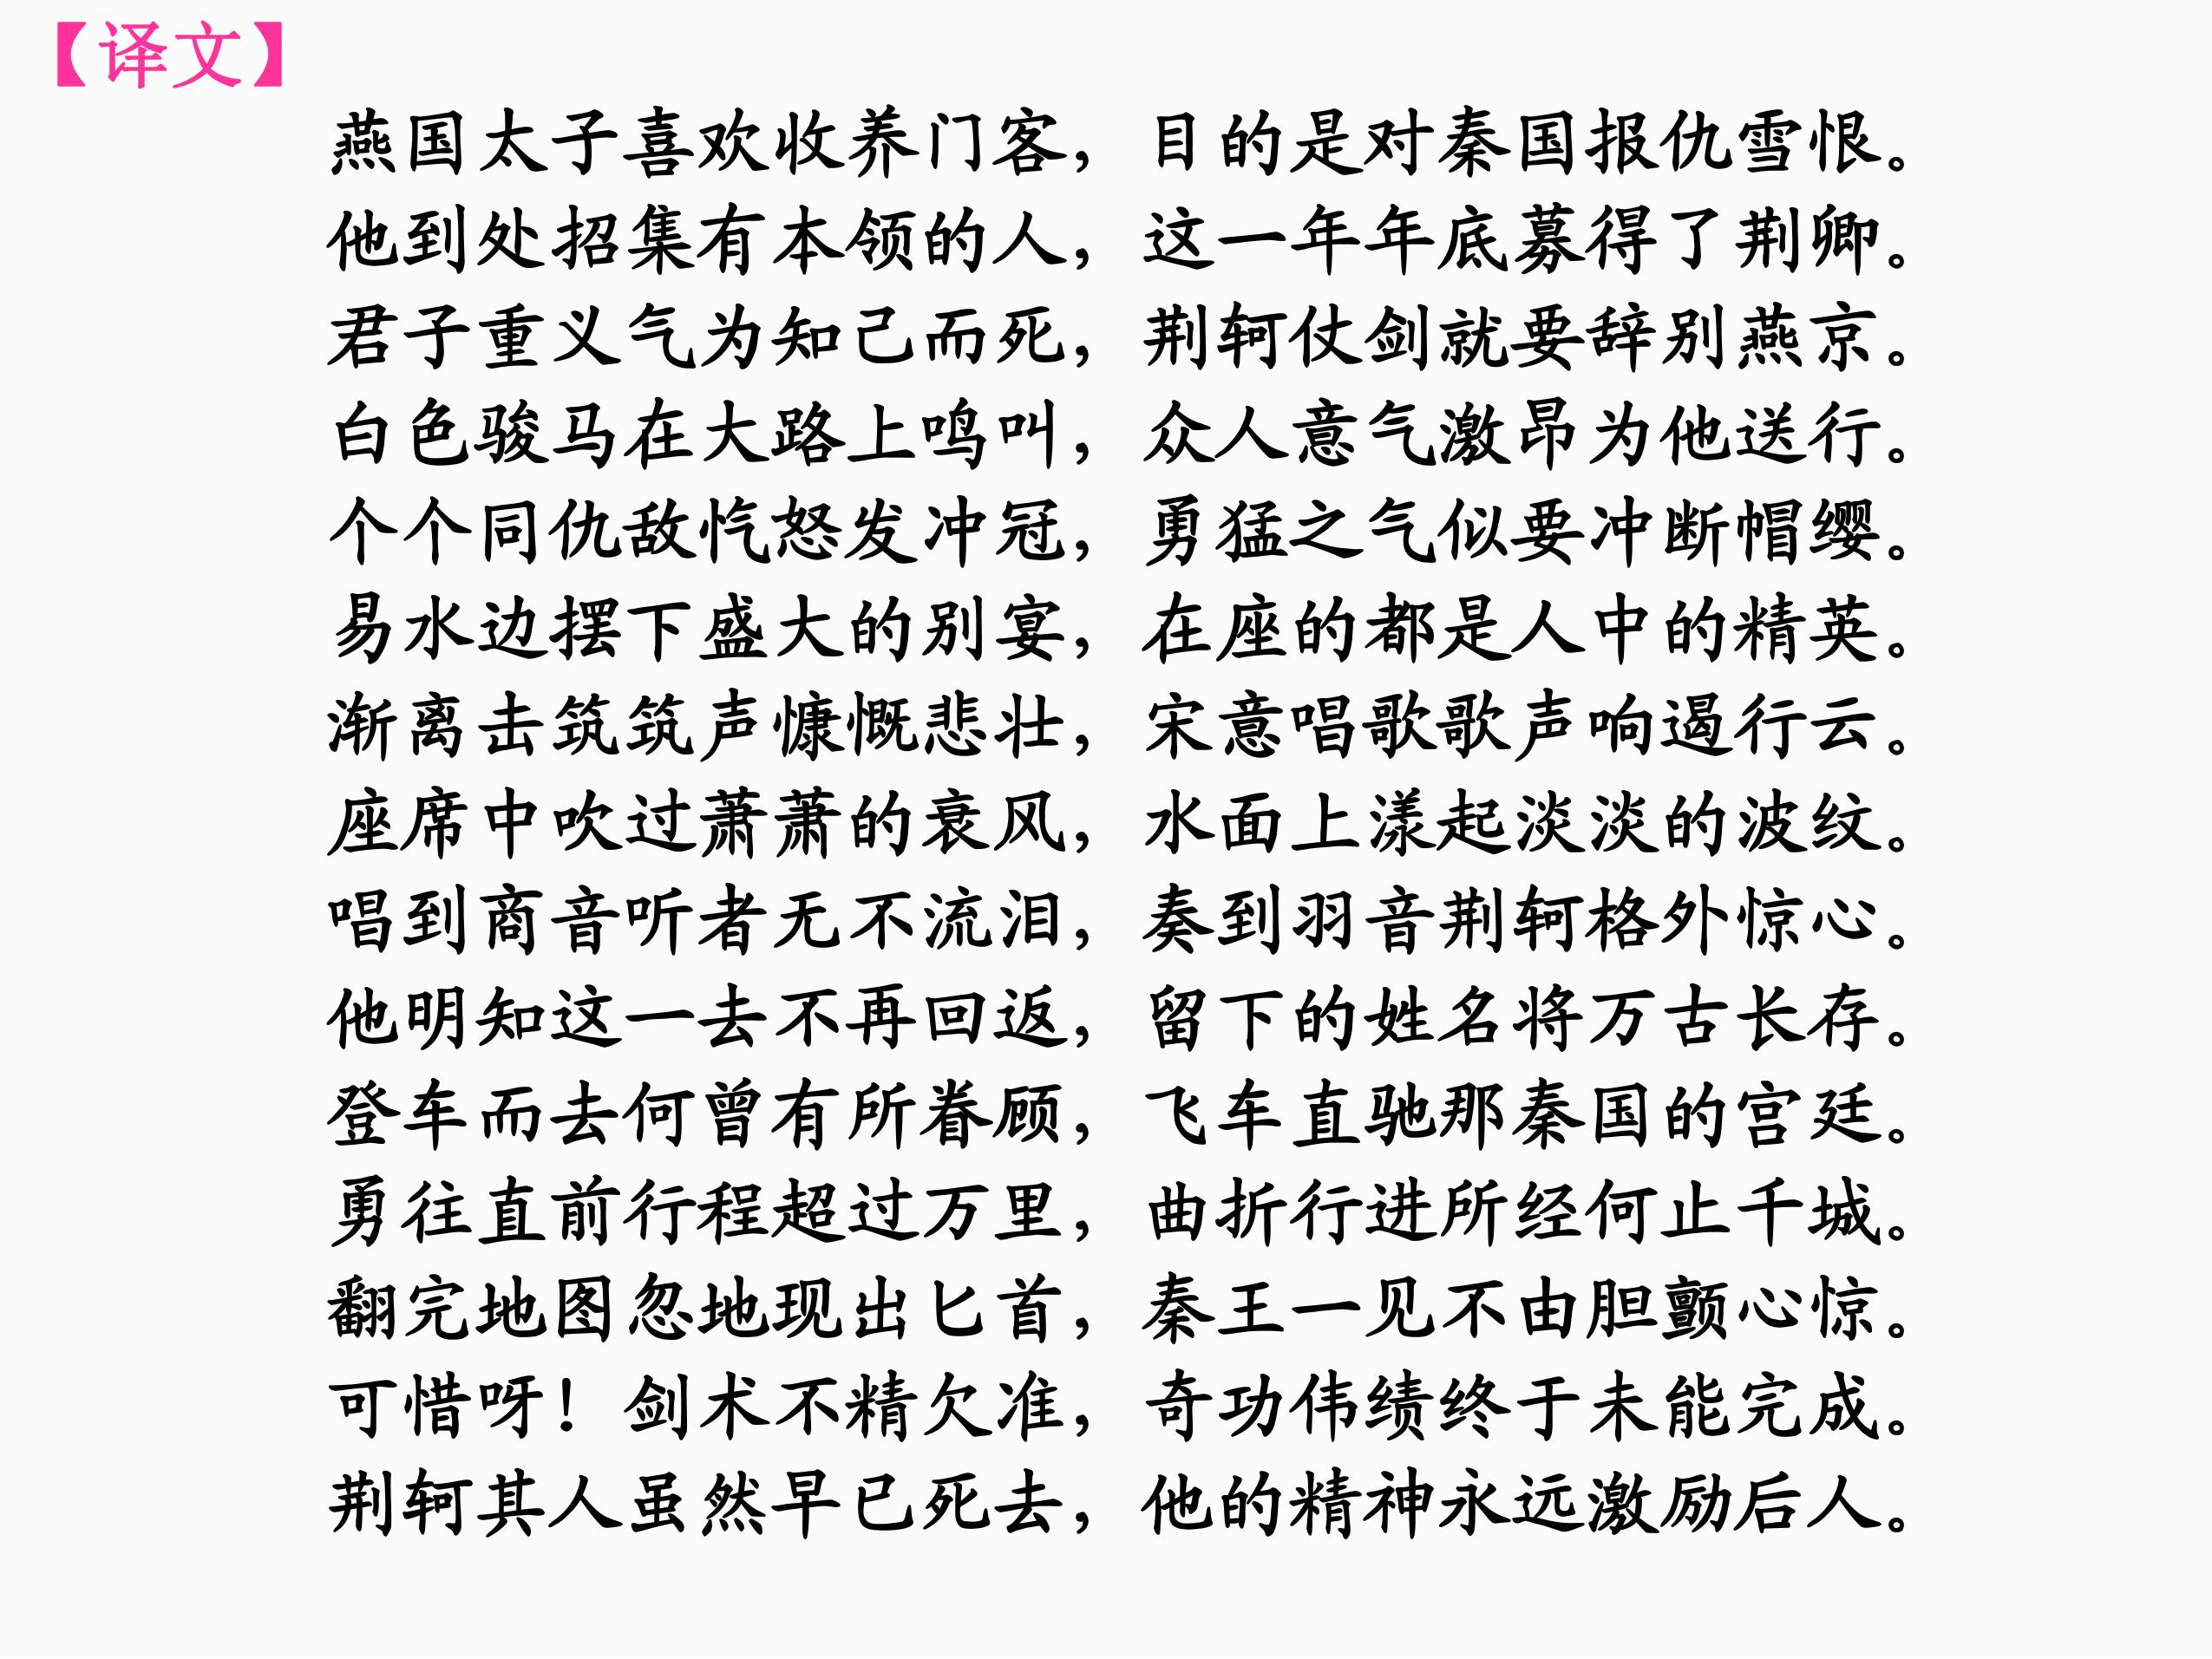 【译文】
燕国太子喜欢收养门客，目的是对秦国报仇雪恨。
他到处招集有本领的人，这一年年底募得了荆卿。
君子重义气为知己而死，荆轲仗剑就要辞别燕京。
白色骏马在大路上鸣叫，众人意气激昂为他送行。
个个同仇敌忾怒发冲冠，勇猛之气似要冲断帽缨。
易水边摆下盛大的别宴，在座的都是人中的精英。
渐离击筑筑声慷慨悲壮，宋意唱歌歌声响遏行云。
座席中吹过萧萧的衰风，水面上漾起淡淡的波纹。
唱到商音听者无不流泪，奏到羽音荆轲格外惊心。
他明知这一去不再回返，留下的姓名将万古长存。
登车而去何曾有所眷顾，飞车直驰那秦国的宫廷。
勇往直前行程超过万里，曲折行进所经何止千城。
翻完地图忽地现出匕首，秦王一见不由胆颤心惊。
可惜呀！剑术不精欠准，奇功伟绩终于未能完成。
荆轲其人虽然早已死去，他的精神永远激励后人。